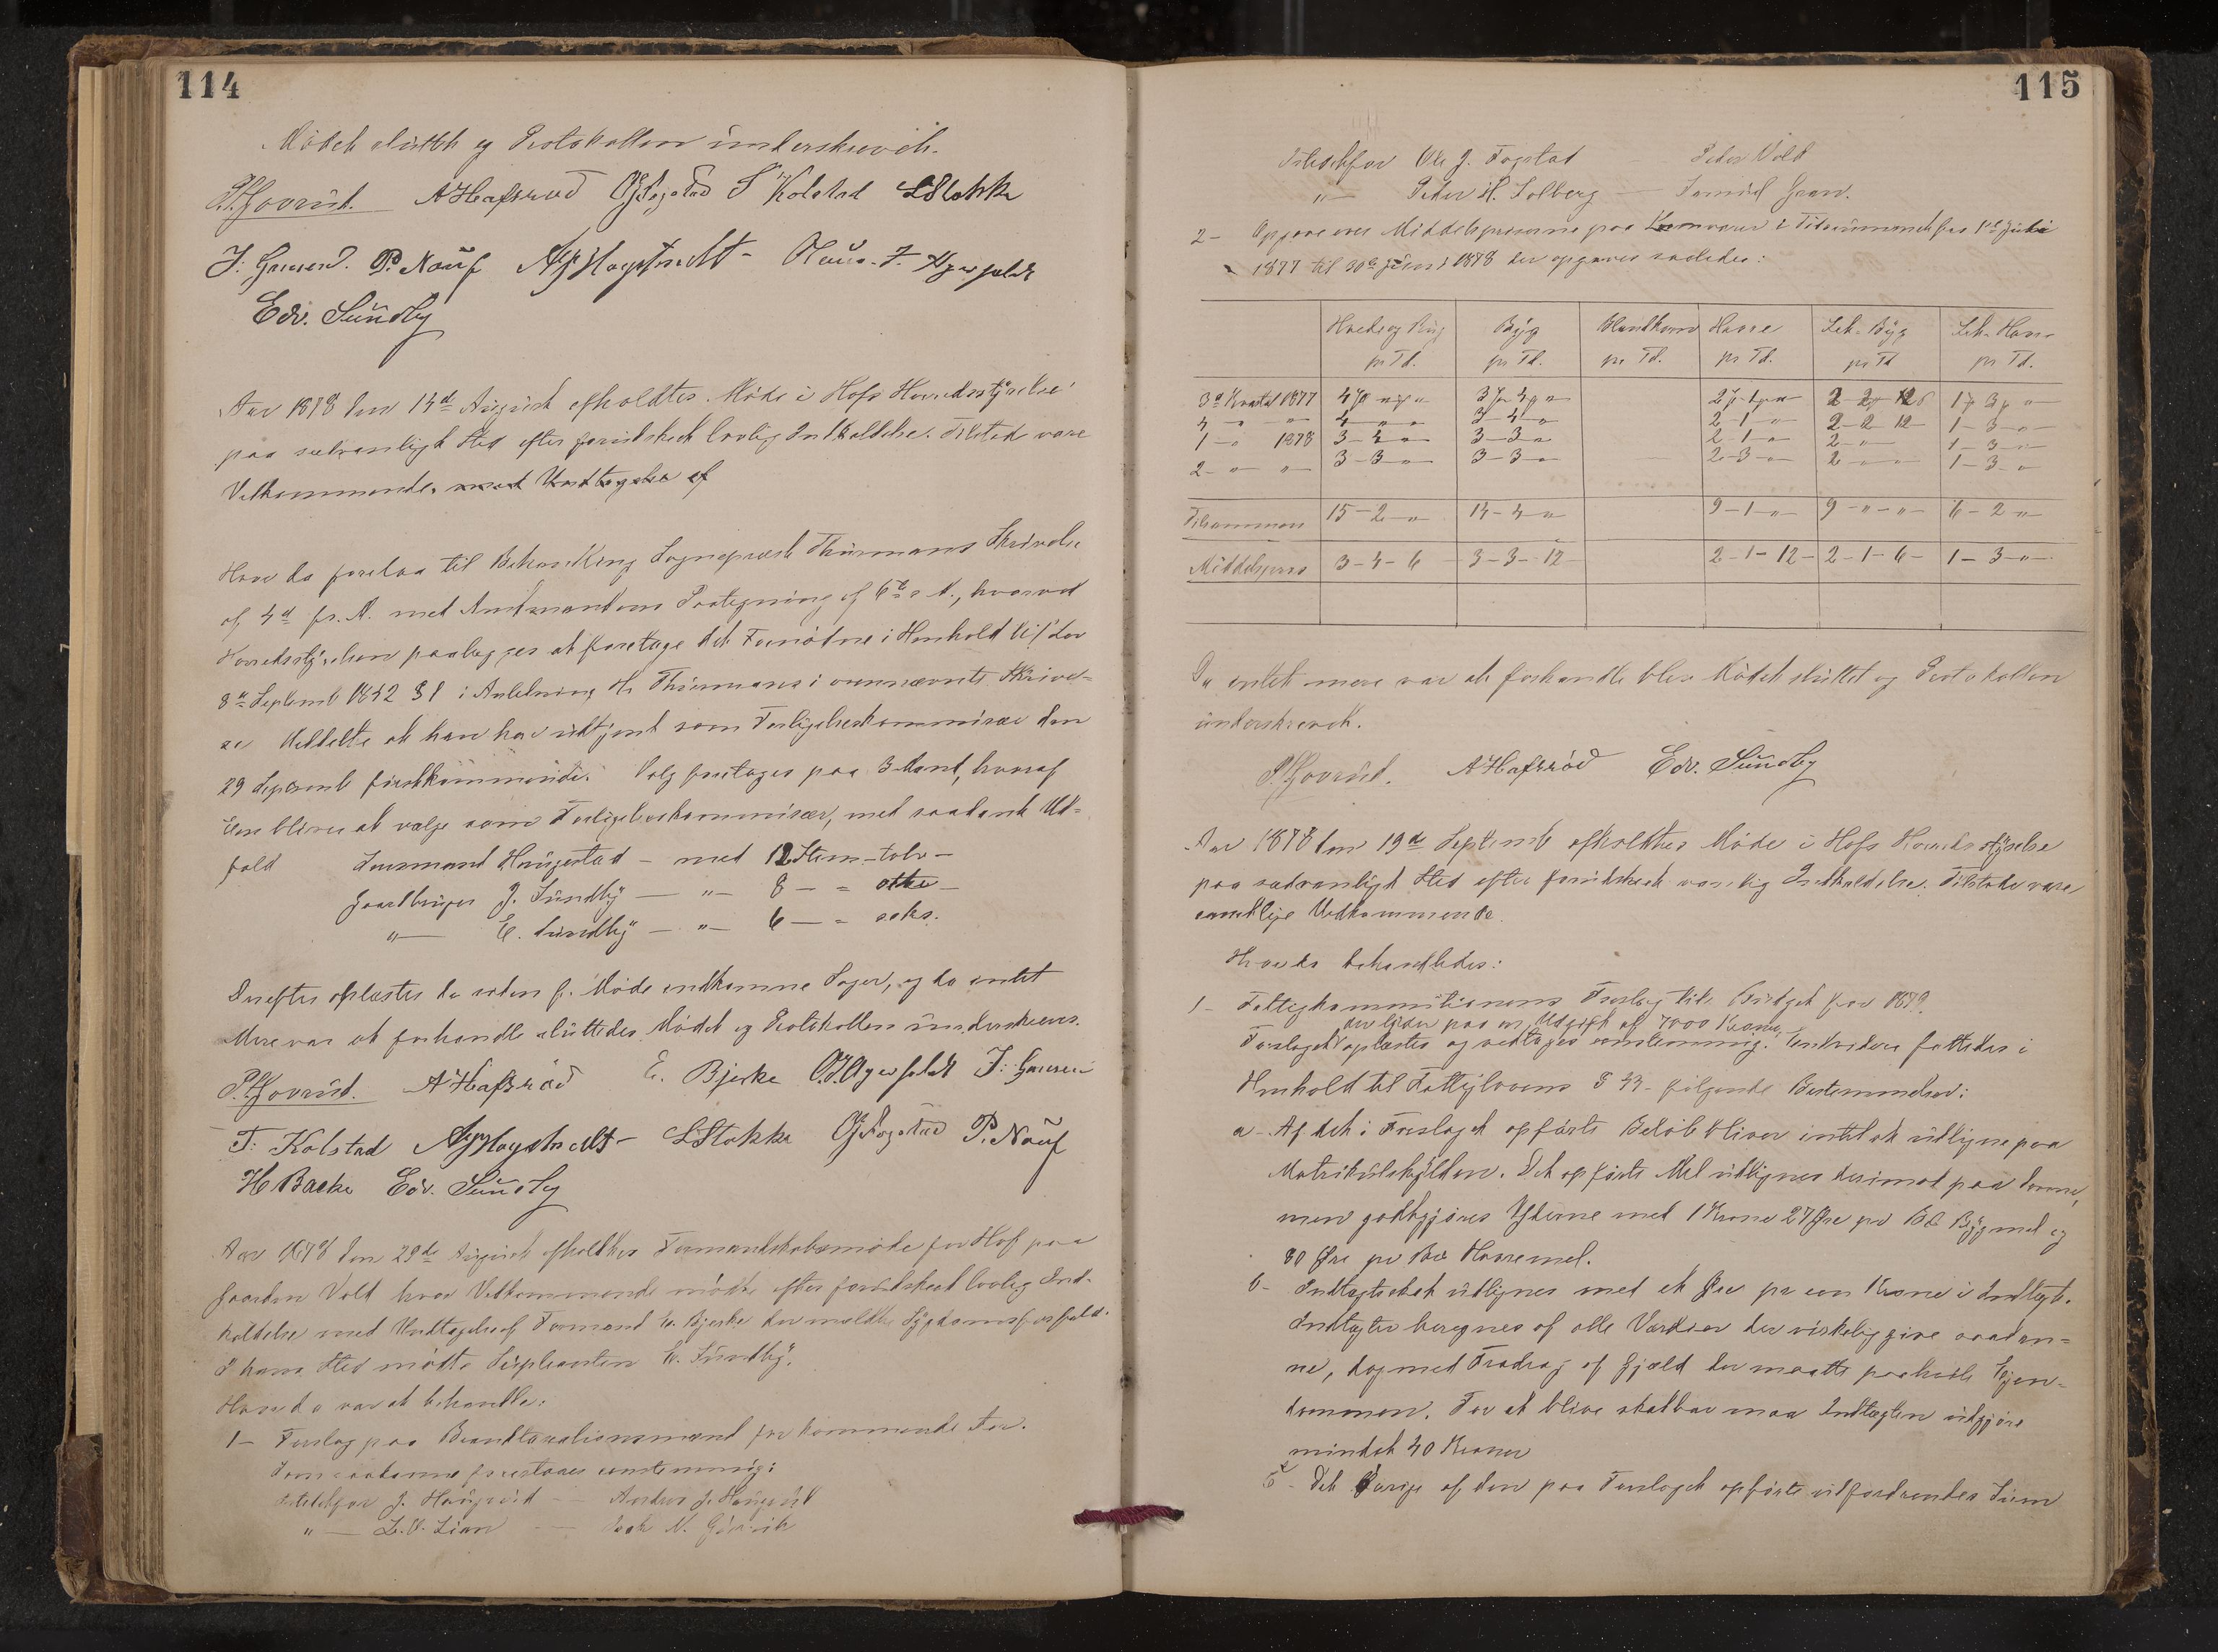 114
Mödet sluttet og Protokollen underskrevet.
P. Hovrud. A Hafsrød OJFogstad T Kolstad LStokke
J: Hansen. P. Nauf AHagstvedt - Claus. F. Agerfeldt
Edv. Sundby
Aar 1878 den 14de August afholdtes Möde i Hofs Herredsstyrelse
paa sædvanligt Sted efter forudskeet lovlig Indkaldelse. Tilstede vare
Vedkommende. med Undtagelse af
Hvor da forelaa til Behandling Sognepræst Thurmans Skrivelse
af 4de ds. M. med Amtmandens Paategning af 6te s. M., hvorved
Herredsstyrelsen paalægges at foretage det Fornødne i Henhold til Lov
8de Septemb 1842 § 1 i Anledning Hr Thurmans i ovennævnte Skrivel=
se Meddelte at han har udtjent som Forligelseskommissær den
29 Septemb förstkommende. Valg foretages paa 3 Mænd, hvoraf
Een bliver at vælge som Forligelseskommissær, med saadant Ud=
fald Lensmand Haugestad - med 12 Stem - tolv -
Gaardbruger J. Sundby - " - 8 - = otte -
" - E. Sundby - " - 6 - = seks.
Derefter oplæstes de siden f. Möde indkomne Sager, og da intet
Mere var at forhandle sluttedes Mödet og Protokollen underskreves.
P. Hovrud. A Hafsrød E. Bjerke C.F.Agerfeldt J: Hansen
T: Kolstad AHagstvedt - LStokke OJFogstad P. Nauf
H Bache Edv. Sundby
Aar 1878 den 29de August afholdtes Formandskabsmöde for Hof paa
Gaarden Vold hvor Vedkommende mödte efter forudskeet lovlig Ind-
kaldelse med Undtagelse af Formand E. Bjerke der meldte Sygdomsforfald.
I hans Sted mödte Suppleanten E. Sundby.
Hvor da var at behandle:
1 - Forslag paa Brandtaxationsmænd for kommende Aar.
Som saadanne foreslaaes eenstemmig:
Istedetfor J. Haugerud - Anders J. Haugerud
" - L. O. Lian -
115
Istedetfor Ole J. Fogstad Peder Vold
" - Peder H. Solberg - Samuel Gran.
2 - Opgave over Middelpriserne paa Kornvarer i Tidsrummet fra 1ste Juli
1877 til 30te Juni 1878 der opgaves saaledes:
Hvede og Rug Byg Blandkorn Havre Let-Byg Let-Havre
pr Td. pr Td. pr Td. pr Td. pr Td pr Td.
3de Kvartal 1877
4 - " "
1 - " 1878 3 - 4 - " 3 - 3 - " 2 - 1 - " 2 - " 1 - 3 - "
2 - " " 3 - 3 - " 3 - 3 - " 2 - 3 - " 2 - " 1 - 3 - "
Tilsammen 15 - 2 - " 14 - 4 - " 9 - 1 - " 9 - " - " 6 - 2 - "
Middelpris 3 - 4 - 6 3 - 3 - 12 2 - 1 - 12 2 - 1 - 6 1 - 3 - "
Da intet mere var at forhandle blev Mödet sluttet og Protokollen
underskrevet.
P. Hovrud. A Hafsrød Edv. Sundby
Aar 1878 den 19de Septemb afholdtes Möde i Hofs Herredsstyrelse
paa sædvanligt Sted efter forudskeet lovlig Indkaldelse. Tilstede vare
samtlige Vedkommende.
Hvor da behandledes:
1 - Fattigkommissionens Forslag til Budget for 1879.
der lyder paa en Udgift af 7000 Kroner
Forslaget oplæstes og vedtages eenstemmig. Endvidere fattedes i
Henhold til Fattiglovens § 43 - fölgende Bestemmelser:
a - Af det i Forslaget opførte Belöb bliver intet at udligne paa
Matrikulskylden. Det opførte Mel udlignes derimod paa samme,
men godtgjöres Yderne med 1 Krone 27 Øre pr B℔ Bygmel og
80 Øre pr B℔ Havremel.
b - Indtægtsskat udlignes med et Øre pr een Krone i Indtægt.
Indtægten beregnes af alle Værdier der virkelig give saadan=
ne, dog med Fradrag af Gjæld der maatte paahvile Ejen=
dommen. For at blive skatbar maa Indtægten udgjöre
mindst 40 Kroner
c - Det Øvrige af den paa Forslaget opførte udfordrendes Sum